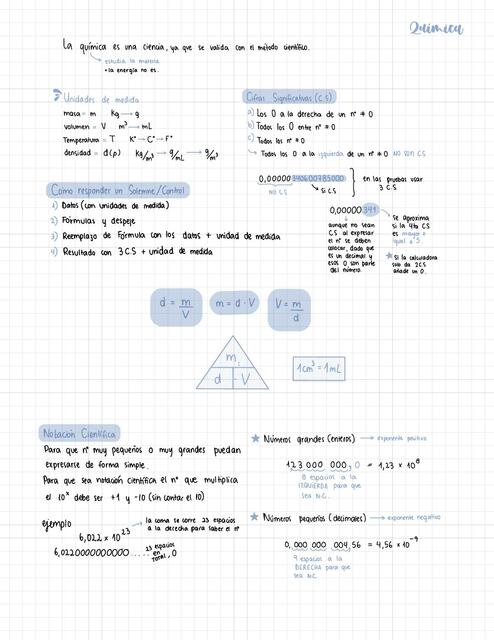 Química
La química es una ciencia, ya que se valida con el método científico.
estudia la materia
• la energía no es.
Unidades de medida
masa = m kg → g
volumen = V m³ → mL
Temperatura = T K° → C° → F°
densidad = d(ρ) kg/m³ → g/mL → g/m³
Cifras Significativas (C.S)
a) Los 0 a la derecha de un n° ≠ 0
b) Todos los 0 entre n° ≠ 0
c) Todos los n° ≠ 0
Todos los 0 a la izquierda de un n° ≠ 0 NO son CS
0,00000340600785000
NO CS
SI CS
en las pruebas usar
3 C.S
0,00000341
aunque no sean
CS al expresar
el n° se deben
colocar, dado que
es un decimal y
esos 0 son parte
del número.
se aproxima
si la 4ta CS
es mayor o
igual a 5
★ Si la calculadora
solo da 2CS
añade un 0.
Como responder un Solemne/Control
1) Datos (con unidades de medida)
2) Fórmulas y despeje
3) Reemplazo de Fórmula con los datos + unidad de medida
4) Resultado con 3 C.S + unidad de medida
d = m/V
m = d · V
V = m/d
m
d · V
1cm³ = 1mL
Notación Científica
Para que n° muy pequeños o muy grandes puedan
expresarse de forma simple.
Para que sea notación científica el n° que multiplica
el 10ˣ debe ser +1 y -10 (sin contar el 10)
ejemplo
6,022 x 10²³
la coma se corre 23 espacios
a la derecha para saber el n°
6,0220000000000 .... 23 espacios en total, 0
★ Números grandes (enteros) → exponente positivo
123 000 000,0 = 1,23 x 10⁸
8 espacios a la
IZQUIERDA para que
sea N.C.
★ Números pequeños (decimales) → exponente negativo
0,000 000 004,56 = 4,56 x 10⁻⁹
9 espacios a la
DERECHA para que
sea N.C